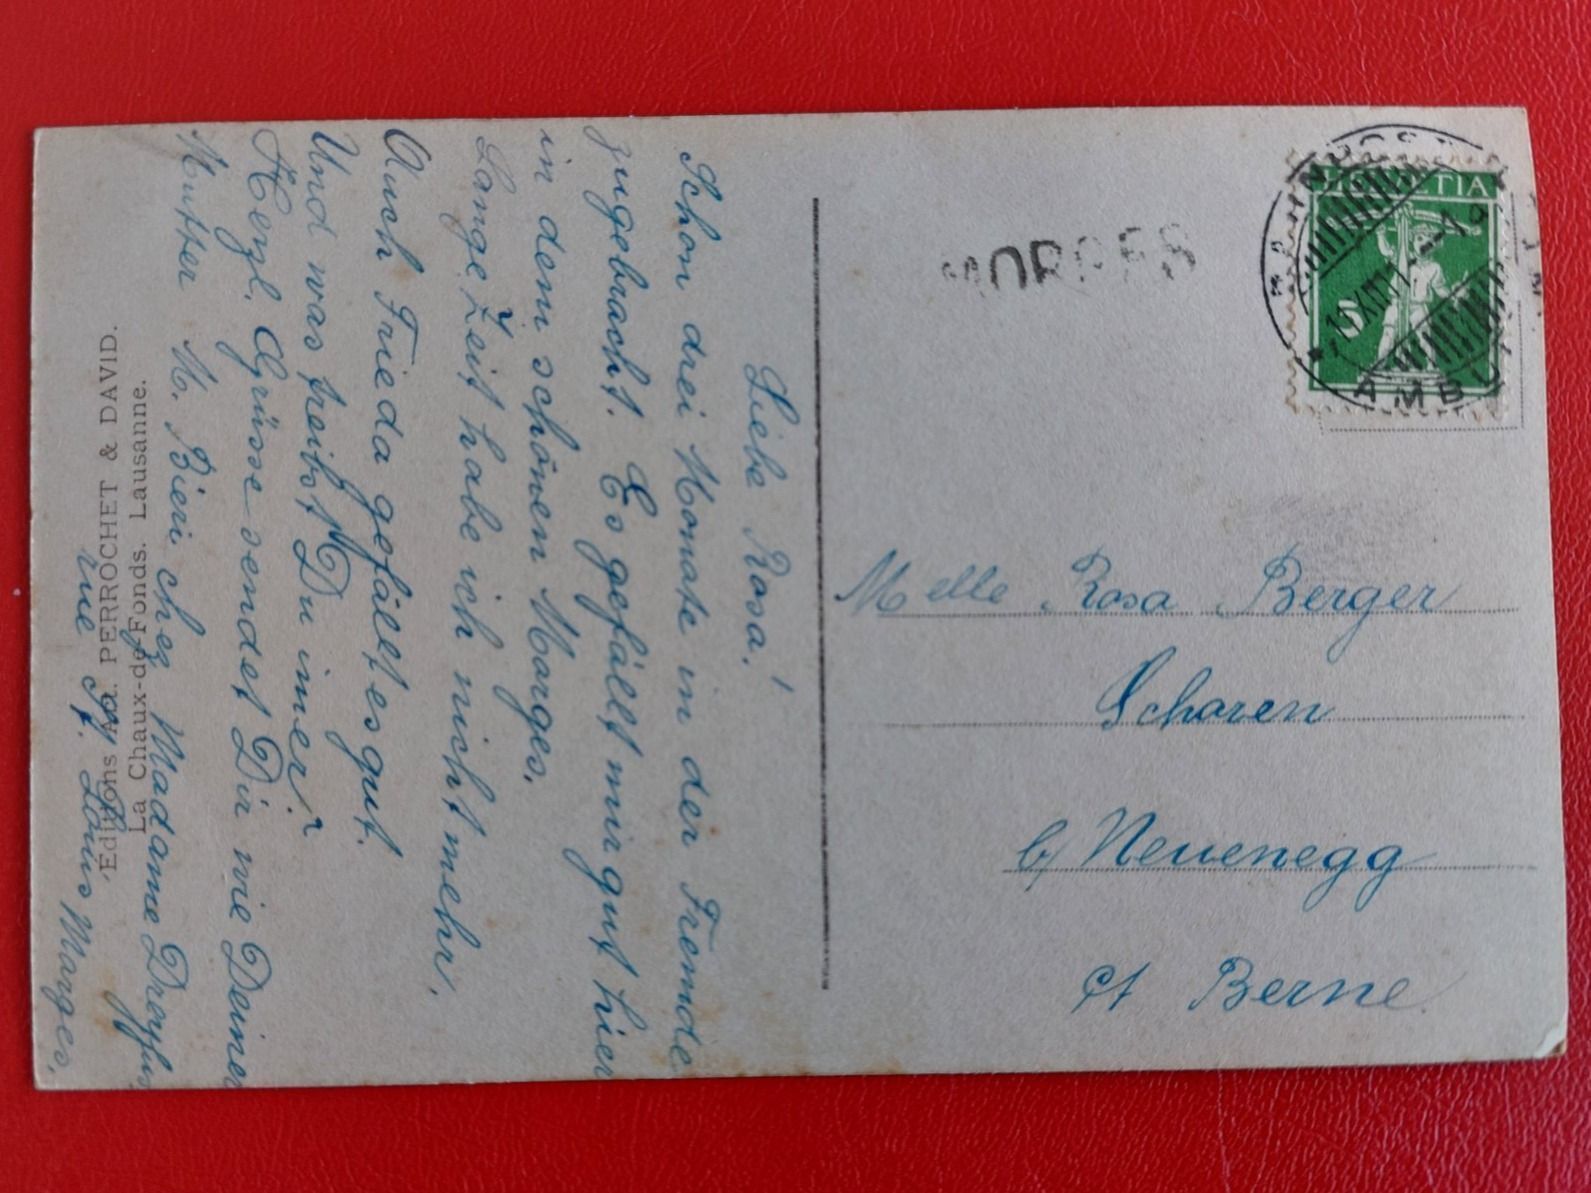 Liebe Rosa!
Schon drei Monate in der Fremde
zugebracht. Es gefällt mir gut hier
in dem schönen Morges.
Lange Zeit habe ich nicht mehr.
Auch Frieda gefällt es gut.
Und was treibst Du imer?
Herzl. Grüsse sendet Dir wie Deiner
Mutter M. Bieri chez Madame Dreyfus
rue St. Louis Morges.
Editions Ad. PERROCHET & DAVID.
La Chaux-de-Fonds. Lausanne.
MORGES
HELVETIA
5
AMBUL
Melle Rosa Berger
Scharen
b/ Neuenegg
Ct Berne